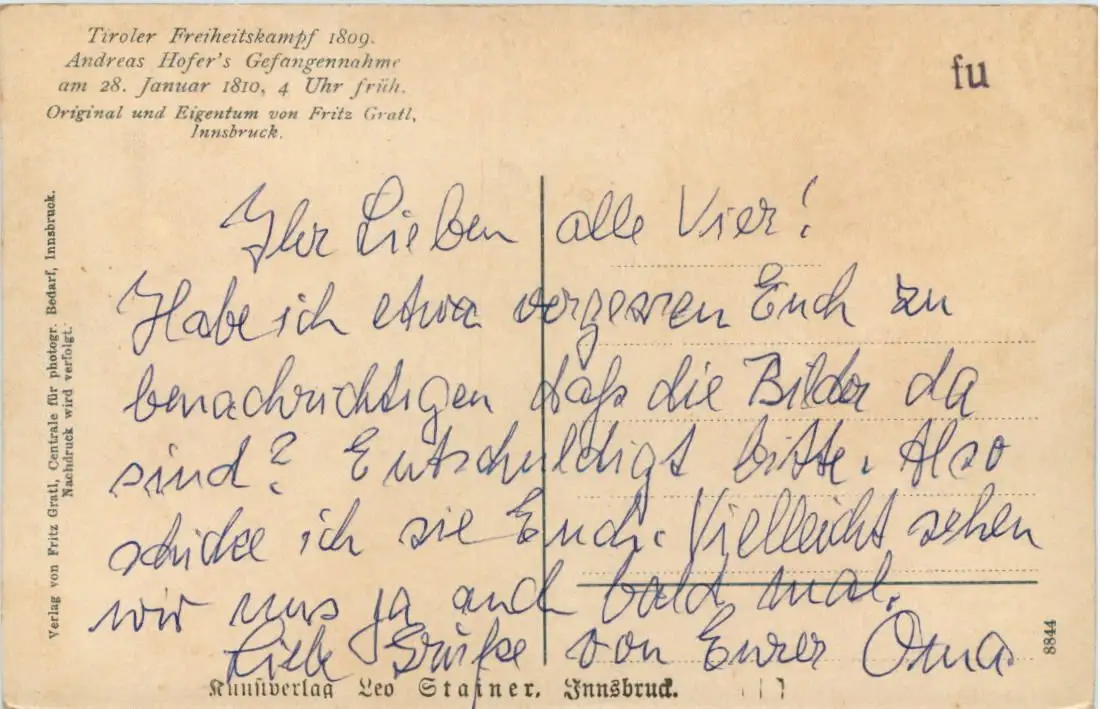 Tiroler Freiheitskampf 1809.
Andreas Hofer's Gefangennahme
am 28. Januar 1810, 4 Uhr früh.
Original und Eigentum von Fritz Gratl,
Innsbruck.
fu
Verlag von Fritz Gratl, Centrale für photogr. Bedarf, Innsbruck.
Nachdruck wird verfolgt.
Ihr Lieben alle Vier!
Habe ich etwa vergessen Euch zu
benachrichtigen daß die Bilder da
sind? Entschuldigt bitte. Also
schicke ich sie Euch. Vielleicht sehen
wir uns ja auch bald mal.
Liebe Grüße von Eurer Oma
8844
Kunstverlag Leo Stainer, Innsbruck.